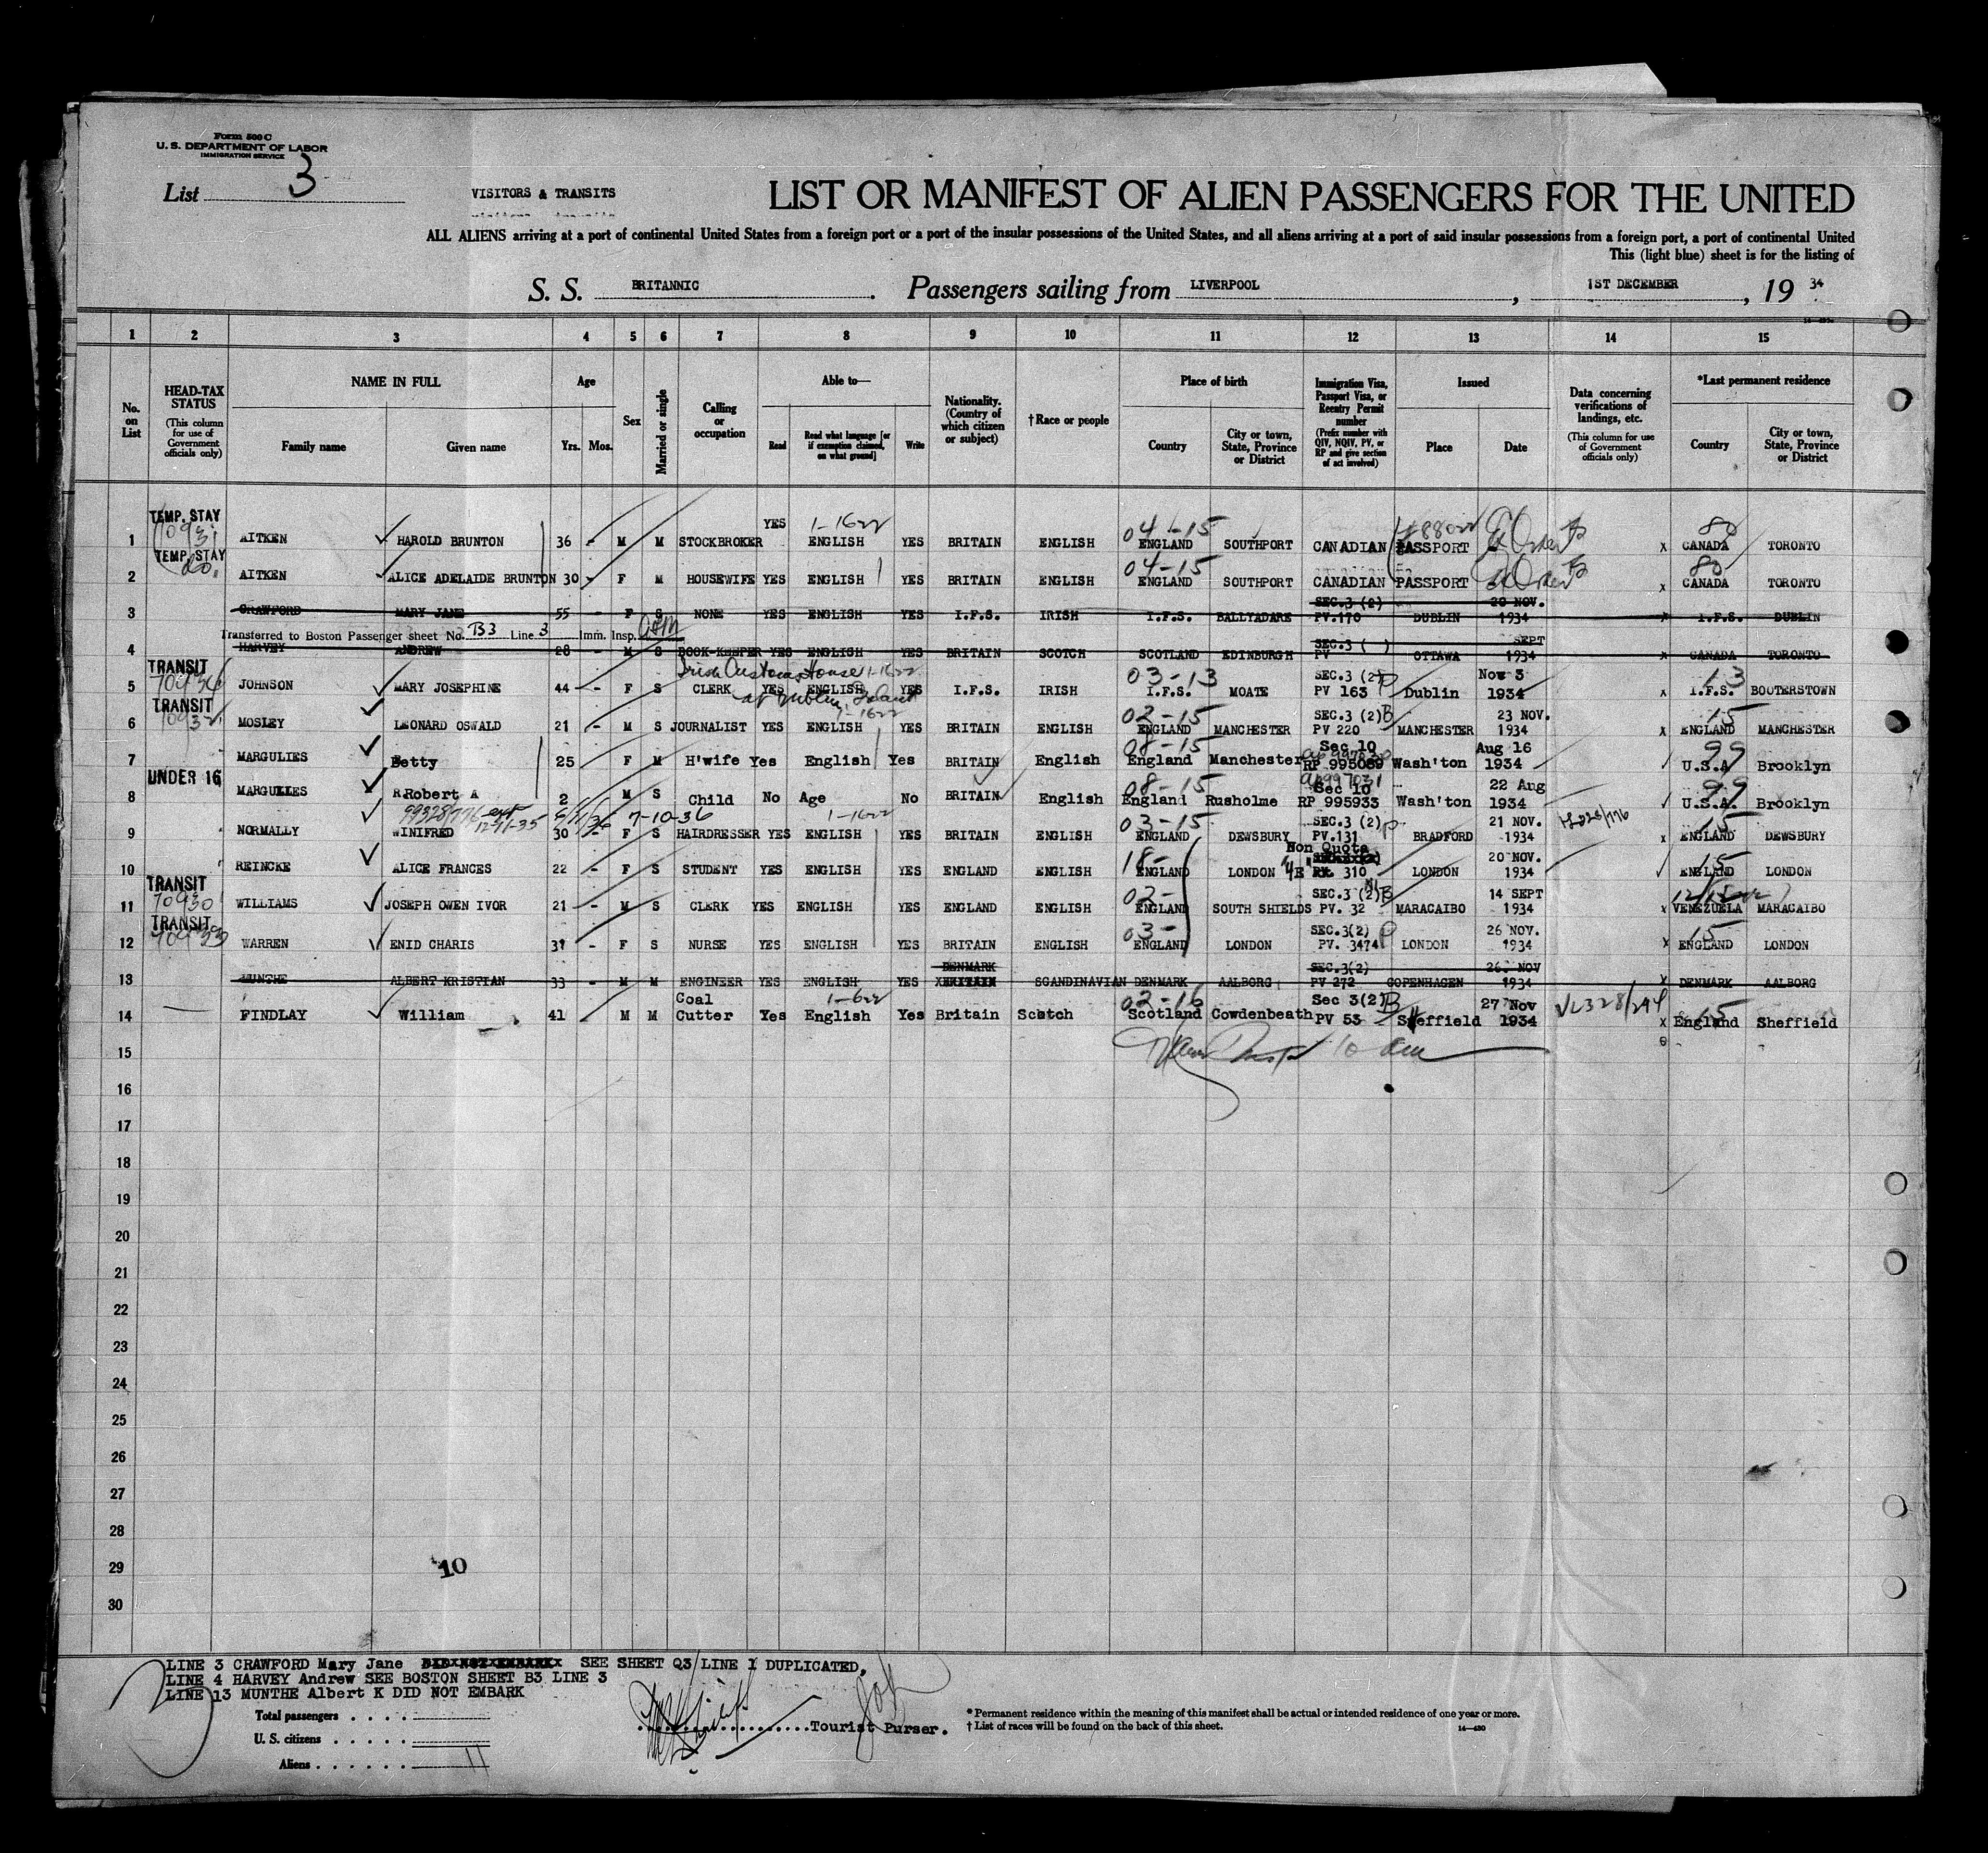 Form 500 C
U. S. DEPARTMENT OF LABOR
IMMIGRATION SERVICE
List 3
VISITORS & TRANSITS
LIST OR MANIFEST OF ALIEN PASSENGERS FOR THE UNITED
ALL ALIENS arriving at a port of continental United States from a foreign port or a port of the insular possessions of the United States, and all aliens arriving at a port of said insular possessions from a foreign port, a port of continental United
This (light blue) sheet is for the listing of
S. S. BRITANNIC. Passengers sailing from LIVERPOOL, 1ST DECEMBER, 19 34
1 2 3 4 5 6 7 8 9 10 11 12 13 14 15
No. on List
HEAD-TAX STATUS (This column for use of Government officials only)
NAME IN FULL
Family name Given name
Age
Yrs. Mos.
Sex
Married or single
Calling or occupation
Able to—
Read Read what language [or if exemption claimed, on what ground] Write
Nationality. (Country of which citizen or subject)
†Race or people
Place of birth
Country City or town, State, Province or District
Immigration Visa, Passport Visa, or Reentry Permit number (Prefix number with QIV, NQIV, PV, or RP and give section of act involved)
Issued
Place Date
Data concerning verifications of landings, etc. (This column for use of Government officials only)
*Last permanent residence
Country City or town, State, Province or District
TEMP. STAY YES 1-1622 04-15 80
1 AITKEN HAROLD BRUNTON 36 - M M STOCKBROKER ENGLISH YES BRITAIN ENGLISH ENGLAND SOUTHPORT CANADIAN PASSPORT x CANADA TORONTO
TEMP. STAY do. 04-15 80
2 AITKEN ALICE ADELAIDE BRUNTON 30 - F M HOUSEWIFE YES ENGLISH YES BRITAIN ENGLISH ENGLAND SOUTHPORT CANADIAN PASSPORT x CANADA TORONTO
SEC.3 (2) 20 NOV.
3 CRAWFORD MARY JANE 55 - F S NONE YES ENGLISH YES I.F.S. IRISH I.F.S. BALLYADARE PV.170 DUBLIN 1934 x I.F.S. DUBLIN
Transferred to Boston Passenger sheet No. B3 Line 3 Imm. Insp.
SEC.3 ( ) SEPT
4 HARVEY ANDREW 28 - M S BOOK-KEEPER YES ENGLISH YES BRITAIN SCOTCH SCOTLAND EDINBURGH PV OTTAWA 1934 x CANADA TORONTO
TRANSIT Irish Customs House 1-1622 03-13 SEC.3 (2) P Nov 3 13
5 JOHNSON MARY JOSEPHINE 44 - F S CLERK YES ENGLISH YES I.F.S. IRISH I.F.S. MOATE PV 163 Dublin 1934 x I.F.S. BOOTERSTOWN
at Dublin
TRANSIT 1-1622 02-15 SEC.3 (2) B 23 NOV. 15
6 MOSLEY LEONARD OSWALD 21 - M S JOURNALIST YES ENGLISH YES BRITAIN ENGLISH ENGLAND MANCHESTER PV 220 MANCHESTER 1934 x ENGLAND MANCHESTER
08-15 Sec 10 Aug 16 99
7 MARGULIES Betty 25 F M H'wife Yes English Yes BRITAIN English England Manchester RP 995089 Wash'ton 1934 U.S.A Brooklyn
UNDER 16 08-15 Sec 10 22 Aug 99
8 MARGULIES Robert A 2 M S Child No Age No BRITAIN English England Rusholme RP 995933 Wash'ton 1934 U.S.A. Brooklyn
99328/776 12-11-35 7-10-36 1-1622 03-15 SEC.3 (2) P 21 NOV. 15
9 NORMALLY WINIFRED 30 - F S HAIRDRESSER YES ENGLISH YES BRITAIN ENGLISH ENGLAND DEWSBURY PV.131 BRADFORD 1934 x ENGLAND DEWSBURY
18- Non Quota 20 NOV. 15
10 REINCKE ALICE FRANCES 22 - F S STUDENT YES ENGLISH YES ENGLAND ENGLISH ENGLAND LONDON "4E" 310 LONDON 1934 ENGLAND LONDON
TRANSIT 70930 02- SEC.3 (2) B 14 SEPT
11 WILLIAMS JOSEPH OWEN IVOR 21 - M S CLERK YES ENGLISH YES ENGLAND ENGLISH ENGLAND SOUTH SHIELDS PV. 32 MARACAIBO 1934 x VENEZUELA MARACAIBO
TRANSIT 70933 03- SEC.3(2) P 26 NOV. 15
12 WARREN ENID CHARIS 31 - F S NURSE YES ENGLISH YES BRITAIN ENGLISH ENGLAND LONDON PV. 3474 LONDON 1934 x ENGLAND LONDON
DENMARK SEC.3(2) 26. NOV
13 MUNTHE ALBERT KRISTIAN 33 - M M ENGINEER YES ENGLISH YES BRITAIN SCANDINAVIAN DENMARK AALBORG PV 272 COPENHAGEN 1934 x DENMARK AALBORG
Coal 1-622 02-16 Sec 3(2) B 27 Nov VL328/294 15
14 FINDLAY William 41 M M Cutter Yes English Yes Britain Scotch Scotland Cowdenbeath PV 53 Sheffield 1934 x England Sheffield
15
16
17
18
19
20
21
22
23
24
25
26
27
28
29
10
30
LINE 3 CRAWFORD Mary Jane SEE SHEET Q3 LINE 1 DUPLICATED,
LINE 4 HARVEY Andrew SEE BOSTON SHEET B3 LINE 3
LINE 13 MUNTHE Albert K DID NOT EMBARK
Total passengers
U. S. citizens
Aliens 11
Tourist Purser.
* Permanent residence within the meaning of this manifest shall be actual or intended residence of one year or more.
† List of races will be found on the back of this sheet.
14—430